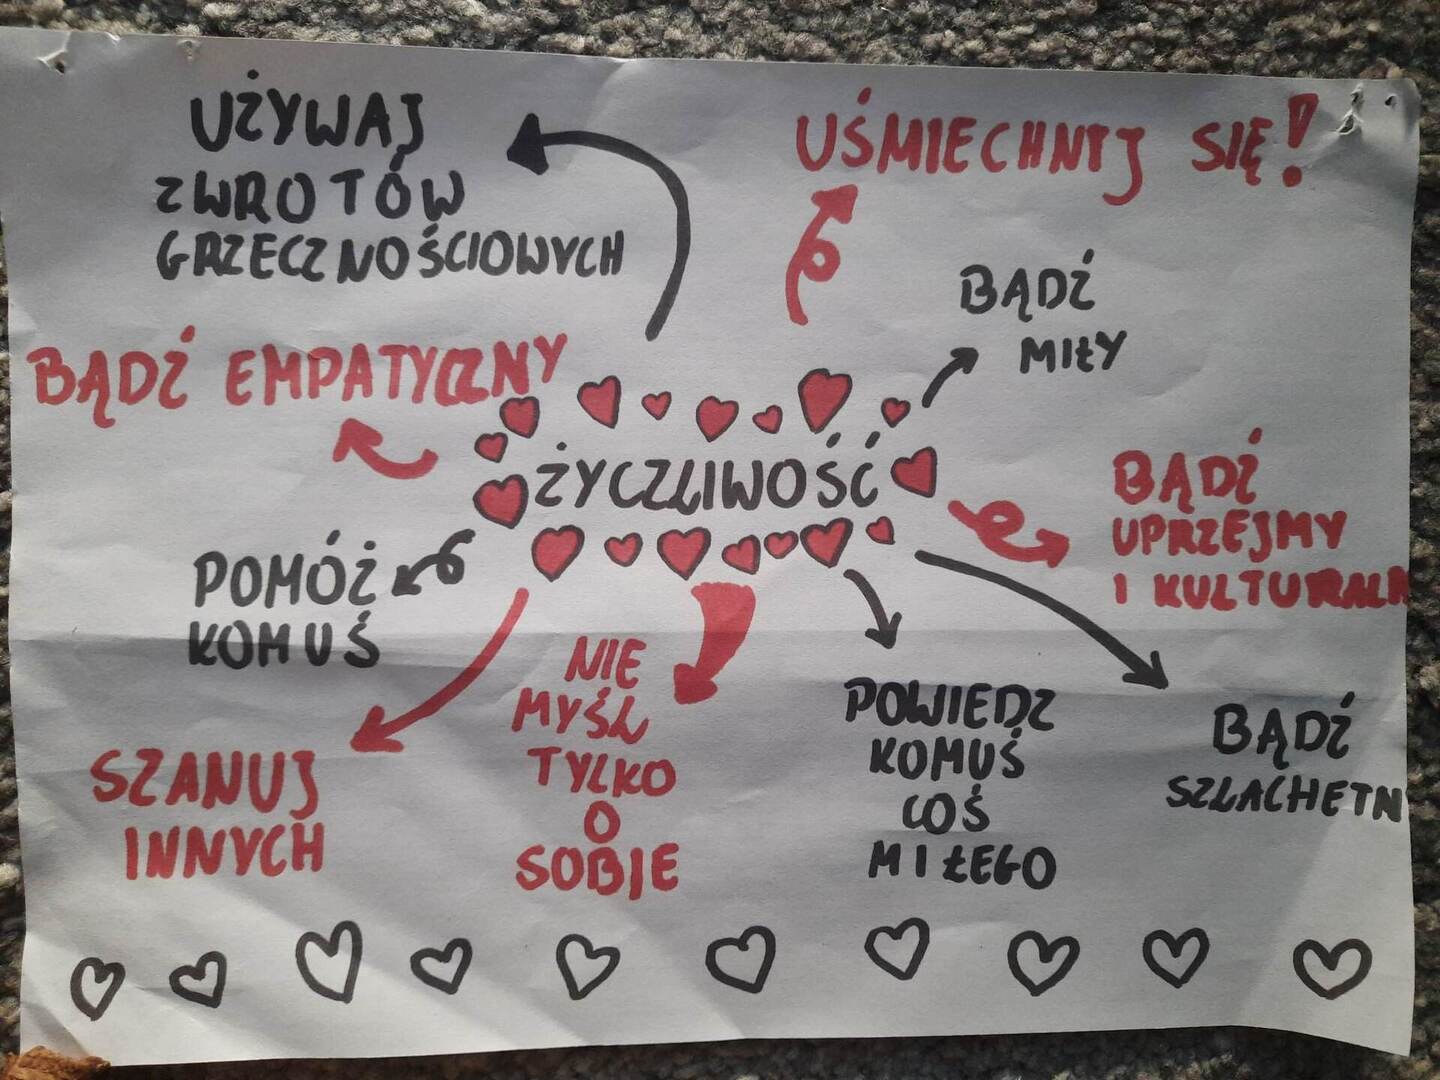 UŻYWAJ
ZWROTÓW
GRZECZNOŚCIOWYCH
UŚMIECHNIJ SIĘ!
BĄDŹ
MIŁY
BĄDŹ EMPATYCZNY
ŻYCZLIWOŚĆ
BĄDŹ
UPRZEJMY
I KULTURALN
POMÓŻ
KOMUŚ
SZANUJ
INNYCH
NIE
MYŚL
TYLKO
O
SOBIE
POWIEDZ
KOMUŚ
COŚ
MIŁEGO
BĄDŹ
SZLACHETN